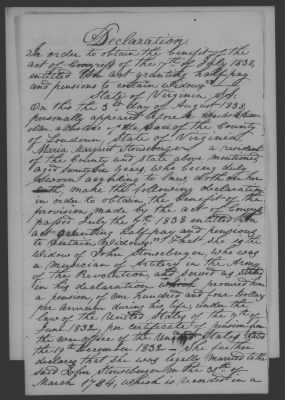 Declaration
In order to obtain the benefit of the
act of Congress of the 7th of July 1838,
entitled An act granting half pay
and pensions to certain widows
State of Virginia, Ss.
On this the 3d day of August 1838,
personally appeared before
a Justice of the Peace of the County
of Loudoun State of Virginia
Maria Margaret Stoneburger a resident
of the County and state above mentioned
aged seventy one years, who being duly
sworn according to law, doth on her
oath, make the following declaration
in order to obtain the benefit of the
provision made by the act of Congress
passed July the 7th, 1838 entitled An
act granting half pay and pensions
to certain Widows. That she is the
Widow of John Stoneburger, who was
a Musician of Artillery in the Army
of The Revolution, and served as stated
in his declaration which procured him
a pension, of one hundred and four Dollars
per annum during his life, under the
law of the United States of the 7th of
June 1832, per certificate of pension from
the war office of the United States dated
the 19th December 1832 – She further
declares that she was legally married to the
said John Stoneburger on the 30th of
March 1784, which is recorded in a